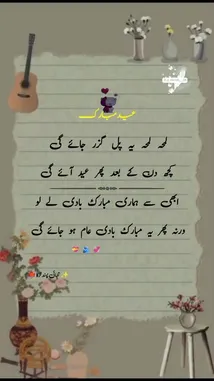 عید مبارک
لمحہ لمحہ یہ پل گزر جائے گی
کچھ دن کے بعد پھر عید آئے گی
ابھی سے ہماری مبارک بادی لے لو
ورنہ پھر یہ مبارک بادی عام ہو جائے گی